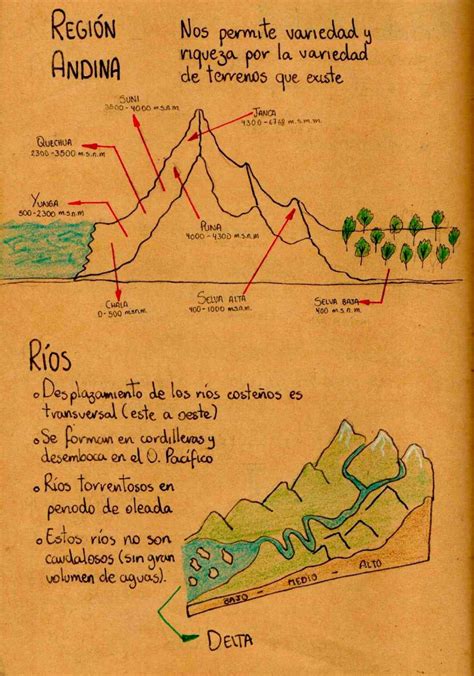 REGIÓN
ANDINA
Nos permite variedad y
riqueza por la variedad
de terrenos que existe
SUNI
3500-4000 m.s.n.m
JANCA
4800-6768 m.s.n.m.
QUECHUA
2300-3500 m.s.n.m
YUNGA
500-2300 m.s.n.m
PUNA
4000-4800 m.s.n.m
CHALA
0-500 m.s.n.m
SELVA ALTA
400-1000 m.s.n.m
SELVA BAJA
400 m.s.n.m
RÍOS
Desplazamiento de los ríos costeños es
transversal (este a oeste)
Se forman en cordilleras y
desemboca en el O. Pacífico
Ríos torrentosos en
periodo de oleada
Estos ríos no son
caudalosos (sin gran
volumen de aguas).
BAJO - MEDIO - ALTO
DELTA